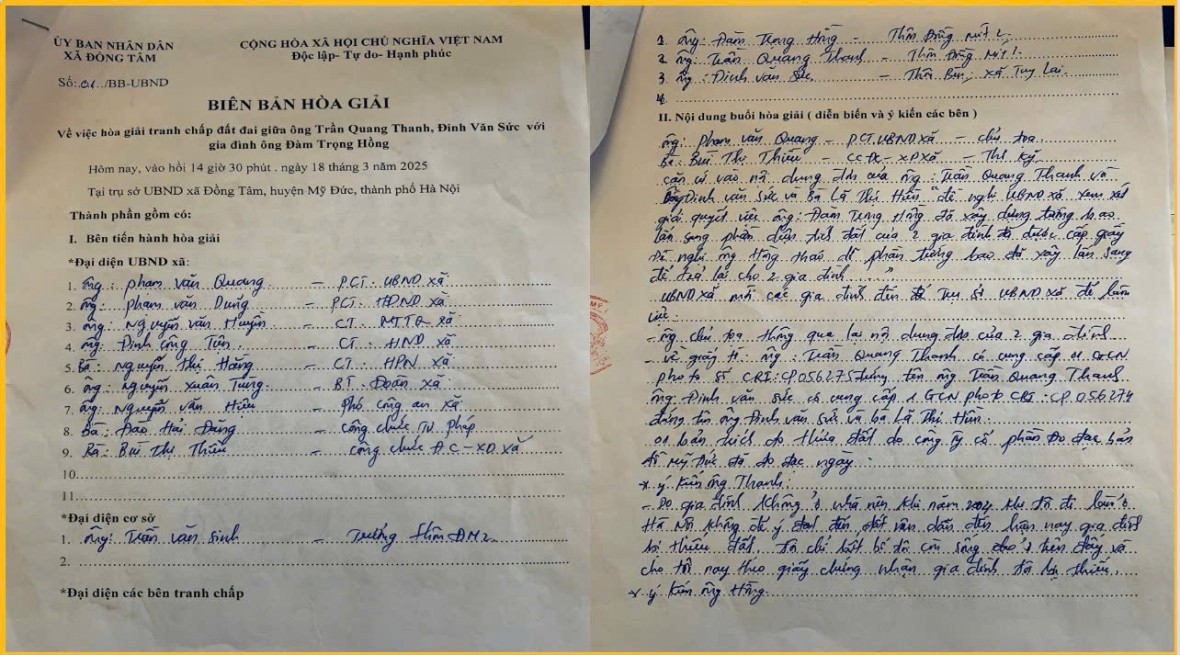 ỦY BAN NHÂN DÂN
XÃ ĐỒNG TÂM
CỘNG HÒA XÃ HỘI CHỦ NGHĨA VIỆT NAM
Độc lập- Tự do- Hạnh phúc
Số:.01../BB-UBND
BIÊN BẢN HÒA GIẢI
Về việc hòa giải tranh chấp đất đai giữa ông Trần Quang Thanh, Đinh Văn Sức với
gia đình ông Đàm Trọng Hồng
Hôm nay, vào hồi 14 giờ 30 phút . ngày 18 tháng 3 năm 2025
Tại trụ sở UBND xã Đồng Tâm, huyện Mỹ Đức, thành phố Hà Nội
Thành phần gồm có:
I. Bên tiến hành hòa giải
*Đại diện UBND xã:
1. ông: phạm văn Quang – PCT. UBND xã
2. ông: phạm văn Dũng – PCT. HĐND xã
3. ông: Nguyễn văn Huyện – CT. MTTQ xã
4. ông: Đinh Công – CT. HND xã
5. Bà: Nguyễn thị Hằng – CT. HPN xã
6. ông: Nguyễn Xuân Tùng – BT. Đoàn xã
7. ông: Nguyễn văn Hiếu – phó công an xã
8. Bà: Đào Hải Đăng – công chức tư pháp
9. Bà: Bùi Thị Thiều – công chức ĐC-XD xã
10.
11.
*Đại diện cơ sở
1. ông: Trần văn Sinh – Trưởng thôn ĐM2
2.
*Đại diện các bên tranh chấp
1. ông: Đàm Trọng Hồng – Thôn Đồng Mít 2.
2. ông: Trần Quang Thanh – Thôn Đồng Mít 2.
3. ông: Đinh văn Sức – Thôn xã Tuy Lai.
4.
II. Nội dung buổi hòa giải ( diễn biến và ý kiến các bên )
ông: phạm văn Quang – PCT.UBND xã – chủ tọa
Bà: Bùi Thị Thiều – CCĐC-XD xã – Thư ký
căn cứ vào nội dung đơn của ông: Trần Quang Thanh và
Đinh văn Sức và Bà Lã Thị Hiền "đề nghị UBND xã xem xét
giải quyết việc ông: Đàm Trọng Hồng đã xây dựng tường bao
lấn sang phần diện tích đất của 2 gia đình đã được cấp giấy
Đề nghị ông Hồng tháo dỡ phần tường bao đã xây lấn sang
để trả lại cho 2 gia đình."
UBND xã mời các gia đình đến trụ sở UBND xã để làm
việc.
– ông chủ tọa thông qua lại nội dung đơn của 2 gia đình
– về giấy tờ: ông: Trần Quang Thanh có cung cấp 01 GCN
photo số CRI:CP.056275 đứng tên ông Trần Quang Thanh
ông Đinh văn Sức có cung cấp 1 GCN photo CRI:CP.056274
đứng tên ông Đinh văn Sức và bà Lã Thị Hiền
01 bản trích đo thửa đất do công ty cổ phần đo đạc bản
đồ Mỹ Đức đã đo đạc ngày:
* ý kiến ông Thanh:
– Do gia đình không ở nhà nên khi năm khi tôi đi làm ở
Hà Nội không để ý đến đất dẫn đến hiện nay gia đình
bị thiếu đất. tôi chỉ biết bố tôi còn sống cho ở trên đấy và
cho tới nay theo giấy chứng nhận gia đình tôi bị thiếu.
* ý kiến ông Hồng